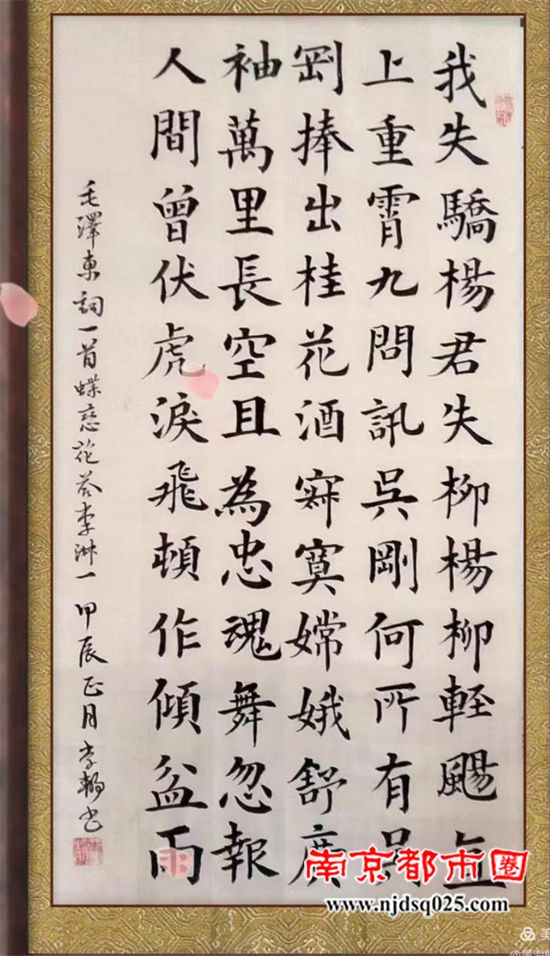 我失驕楊君失柳楊柳輕颺直
上重霄九問訊吳剛何所有吳
剛捧出桂花酒寂寞嫦娥舒廣
袖萬里長空且為忠魂舞忽報
人間曾伏虎淚飛頓作傾盆雨
毛澤東詞一首蝶恋花荅李淑一甲辰正月李书
南京都市圈
www.njdsq025.com
美